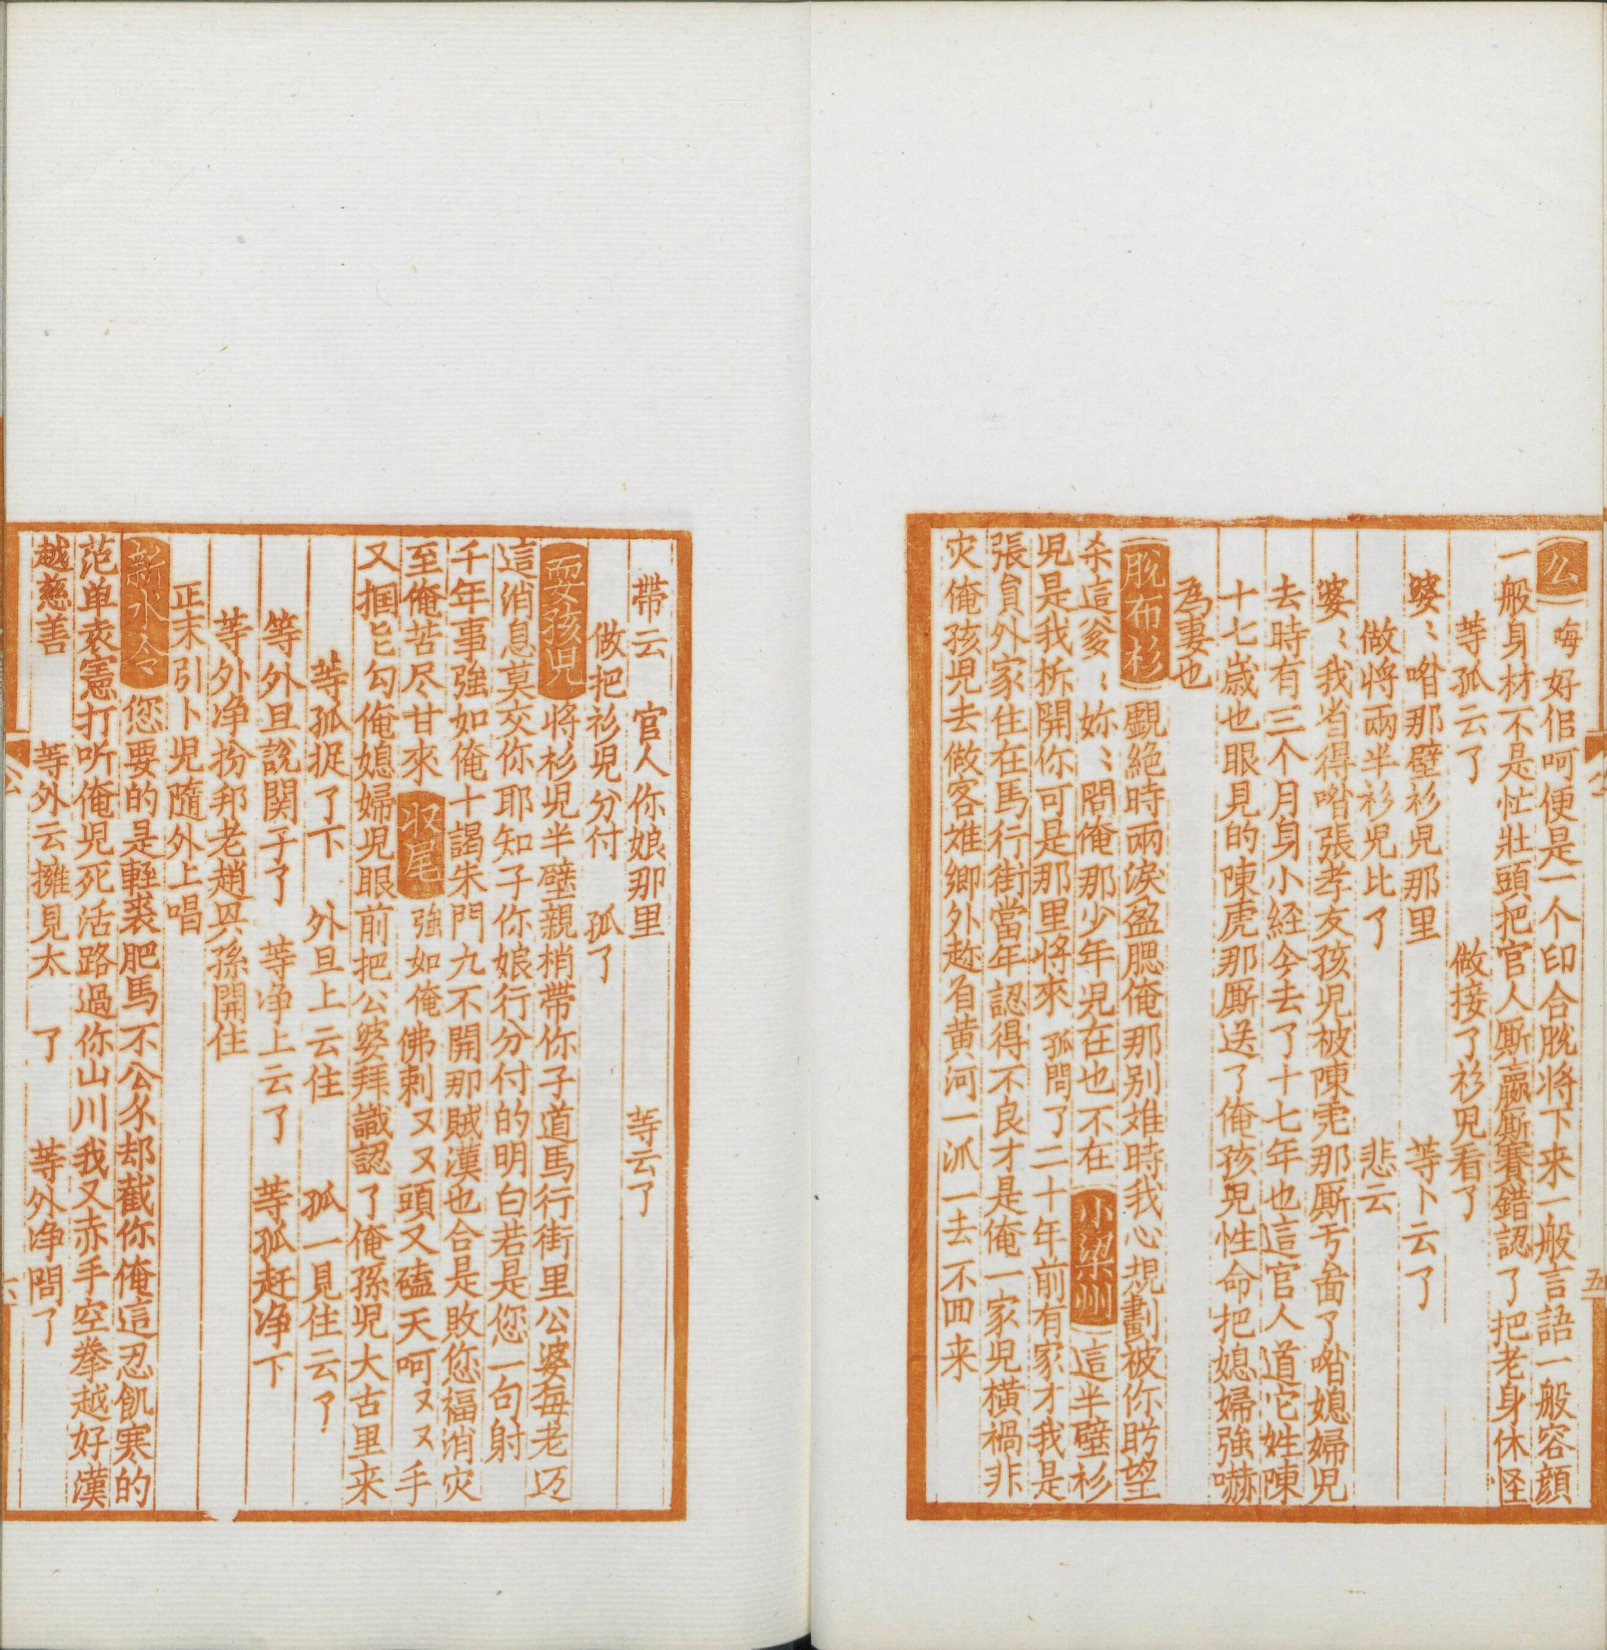 么 嗨好佀呵便是一个印合脫将下来一般言語一般容顔
一般身材不是忙壯頭把官人厮羸厮賽錯認了把老身休怪
等孤云了 做接了衫兒看了
婆〻喒那壁衫兒那里 等卜云了
做將兩半衫兒比了 悲云
婆〻我省得喒張孝友孩兒被陳虎那厮亏啚了喒媳婦兒
去時有三个月身小経今去了十七年也這官人道它姓陳
十七歲也眼見的陳虎那厮送了俺孩兒性命把媳婦強嚇
為妻也
脫布衫 覷絶時兩淚盈腮俺那别𮥼時我心䂓劃被你盻望
杀這爹〻妳〻問俺那少年兒在也不在 小梁州 這半壁衫
兒是我拆開你可是那里将來 孤問了二十年前有家才我是
張負外家住在馬行街當年認得不良才是俺一家兒橫禍非
灾俺孩兒去做客𮥼鄉外趂負黄河一𣲖一去不囬来
帶云 官人你娘那里 等云了
做把衫兒分付 孤了
耍孩兒 将衫兒半壁親梢帶你子道馬行街里公婆每老迈
這消息莫交你耶知子你娘行分付的明白若是您一句射
千年事強如俺十謁朱門九不開那賊漢也合是敗您福消灾
至俺苦尽甘來 收尾 強如俺佛剌又又頭又磕天呵又又手
又掴㐳勾俺媳婦兒眼前把公婆拜識認了俺孫兒大古里来
等孤捉了下 外旦上云住 孤一見住云了
等外旦說関子了 等净上云了 等孤赶净下
等外净扮邦老趙興孫開住
正末引卜兒隨外上唱
新水令 您要的是輕裘肥馬不公𠆳却截你俺這忍飢寒的
范单袁憲打听俺兒死活路過你山川我又赤手空拳越好漢
越慈善 等外云擁見太 了 等外净問了